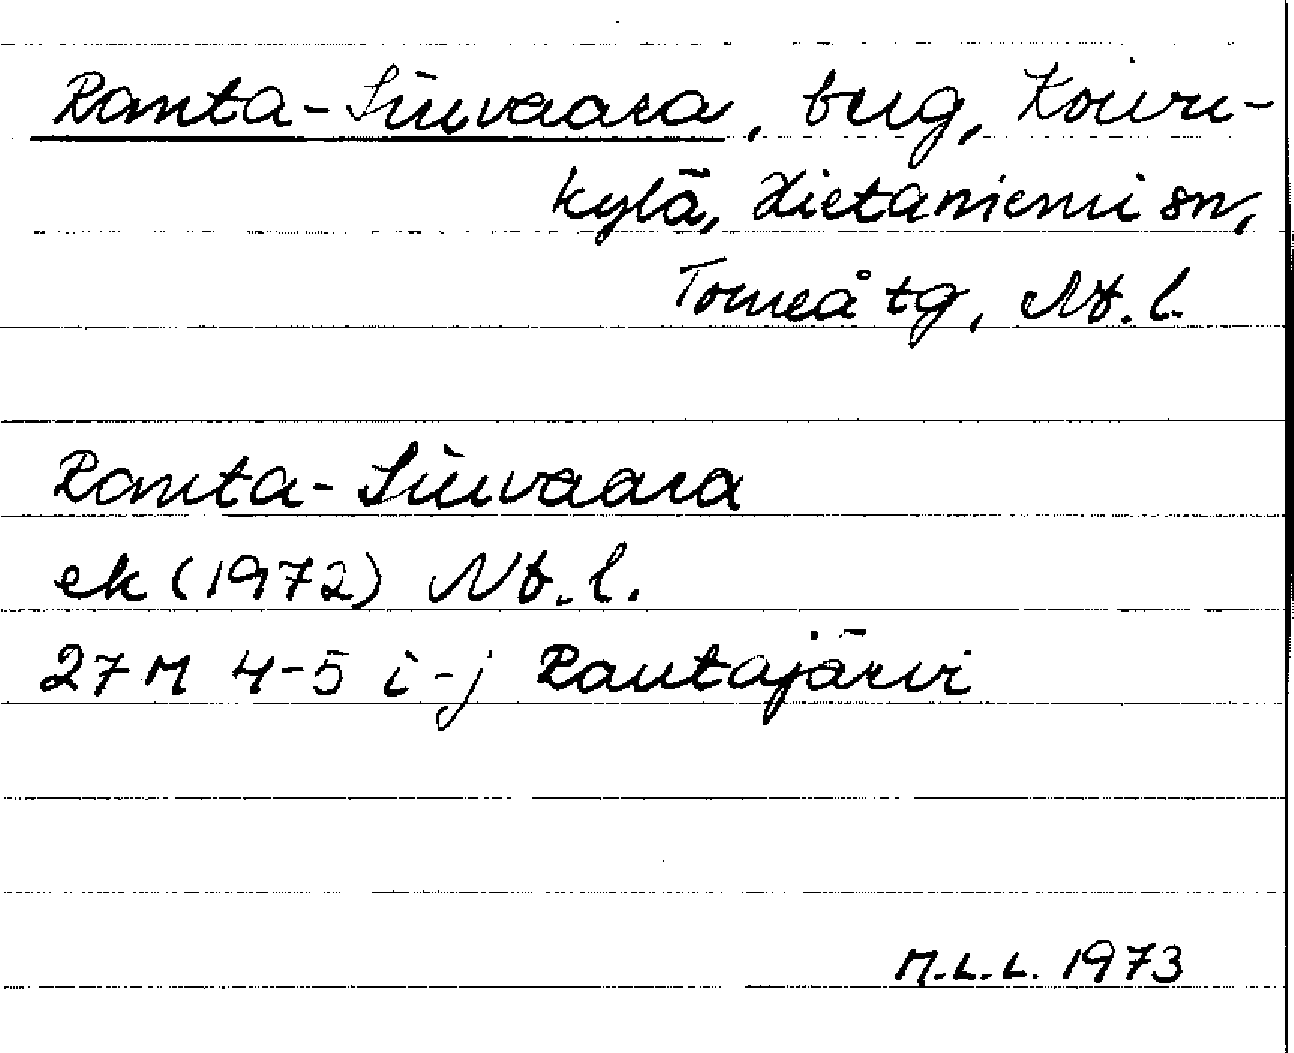 Ranta-Siuvaara, berg, Koivu-
kylä, Hietaniemi sn,
Torneå tg, Nb.l.
Ranta-Siuvaara
ek (1972) Nb.l.
27M 4-5 i-j Rautajärvi
M.L.L. 1973